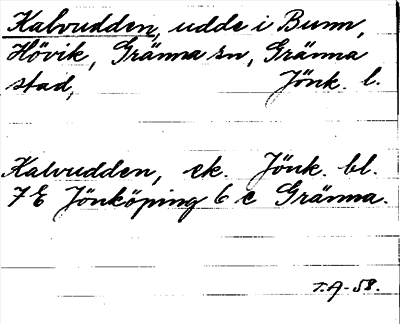 Kalvudden, udde i Bunn,
Hövik, Gränna sn, Gränna
stad, Jönk. l.
Kalvudden, ek. Jönk. bl.
7 E Jönköping 6 e Gränna.
T.A-58.